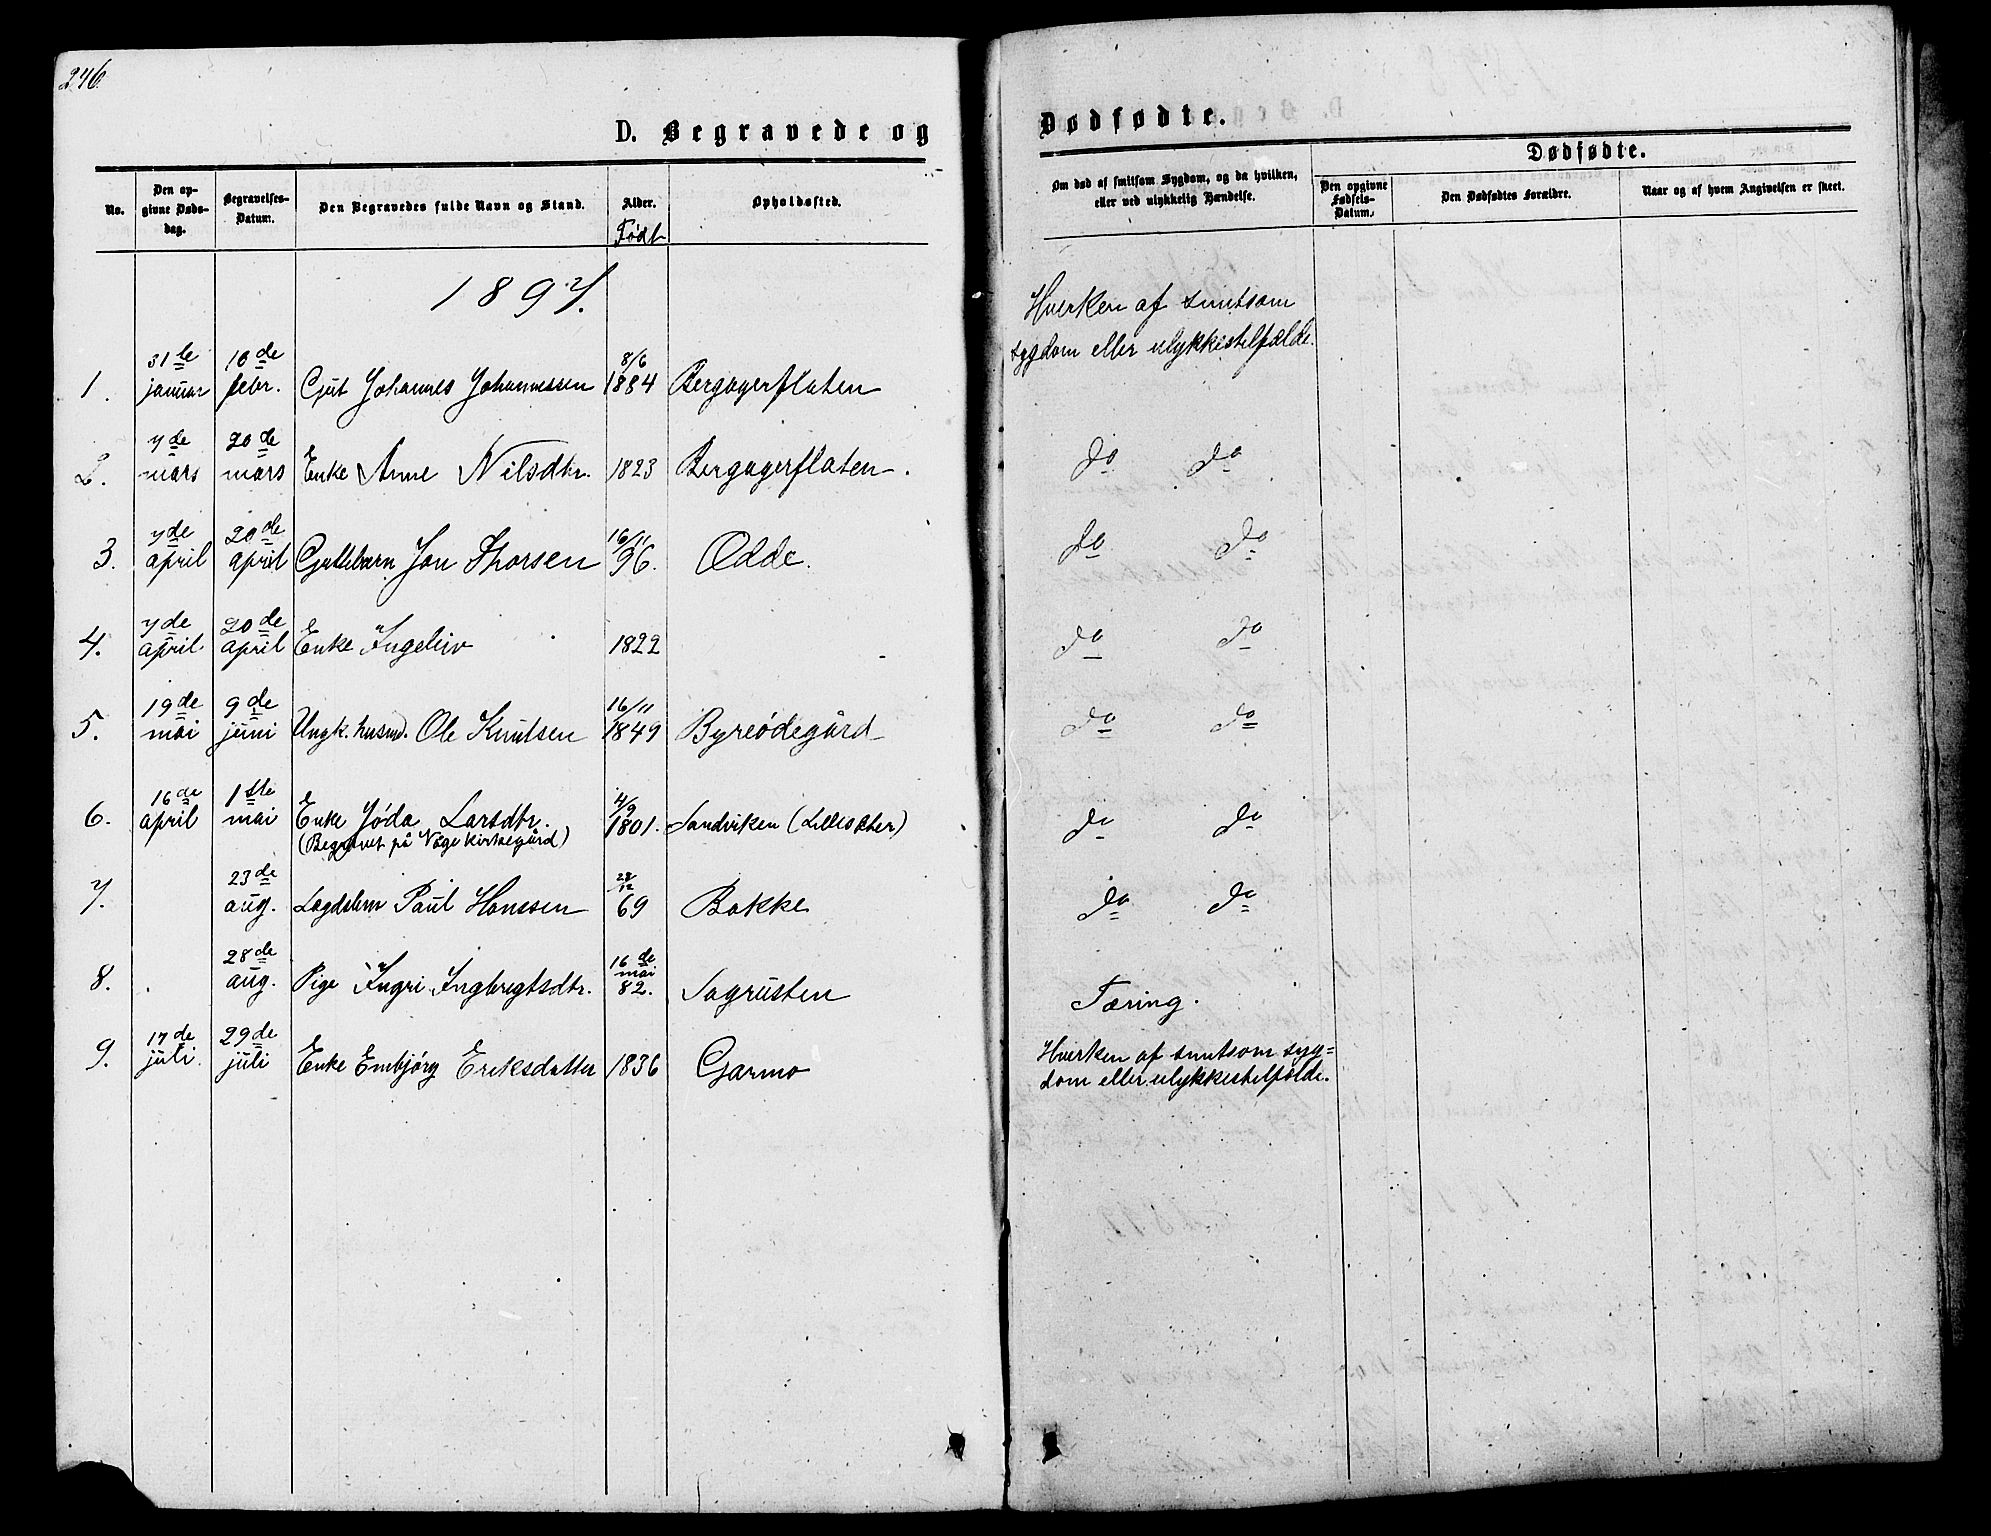 246
D. Begravede og
Dødfødte.
No.
Den op-
givne Døds-
dag.
Begravelses-
Datum.
Den Begravedes fulde Navn og Stand.
Alder.
Født
Opholdssted.
Om død af smitsom Sygdom, og da hvilken,
eller ved ulykkelig Hændelse.
Dødfødte.
Den opgivne
Fødsels-
Datum.
Den Dødfødtes Forældre.
Naar og af hvem Angivelsen er skeet.
1897.
1. 31te januar 10de febr. Gut Johannes Johannessen 8/6 1884 Bergagerflaten Hverken af smitsom
sygdom eller ulykkestilfælde.
2. 7de mars 20de mars Enke Anne Nilsdtr. 1823 Bergagerflaten. do do
3. 7de april 20de april Guttebarn Jon Thorsen 16/11 96. Ødde. do do
4. 7de april 20de april Enke Ingeleiv 1822 do do
5. 19de mai 9de juni Ungk. husmd. Ole Knutsen 16/11 1849 Byreødegård do do
6. 16de april 1ste mai Enke Jøda Larsdtr. 4/9 1801. Sandviken (Lillesæter) do do
(Begravet på Våge kirkegård)
7. 23de aug. Lægdslem Paul Hanssen 28/12 69 Bakke do do
8. 28de aug. Pige Ingri Ingbregtsdtr. 16de mai 82. Sagrusten Tæring.
9. 17de juli. 29de juli Enke Embjørg Eriksdatter 1836 Garmo Hverken af smitsom syg=
dom eller ulykkestilfælde.